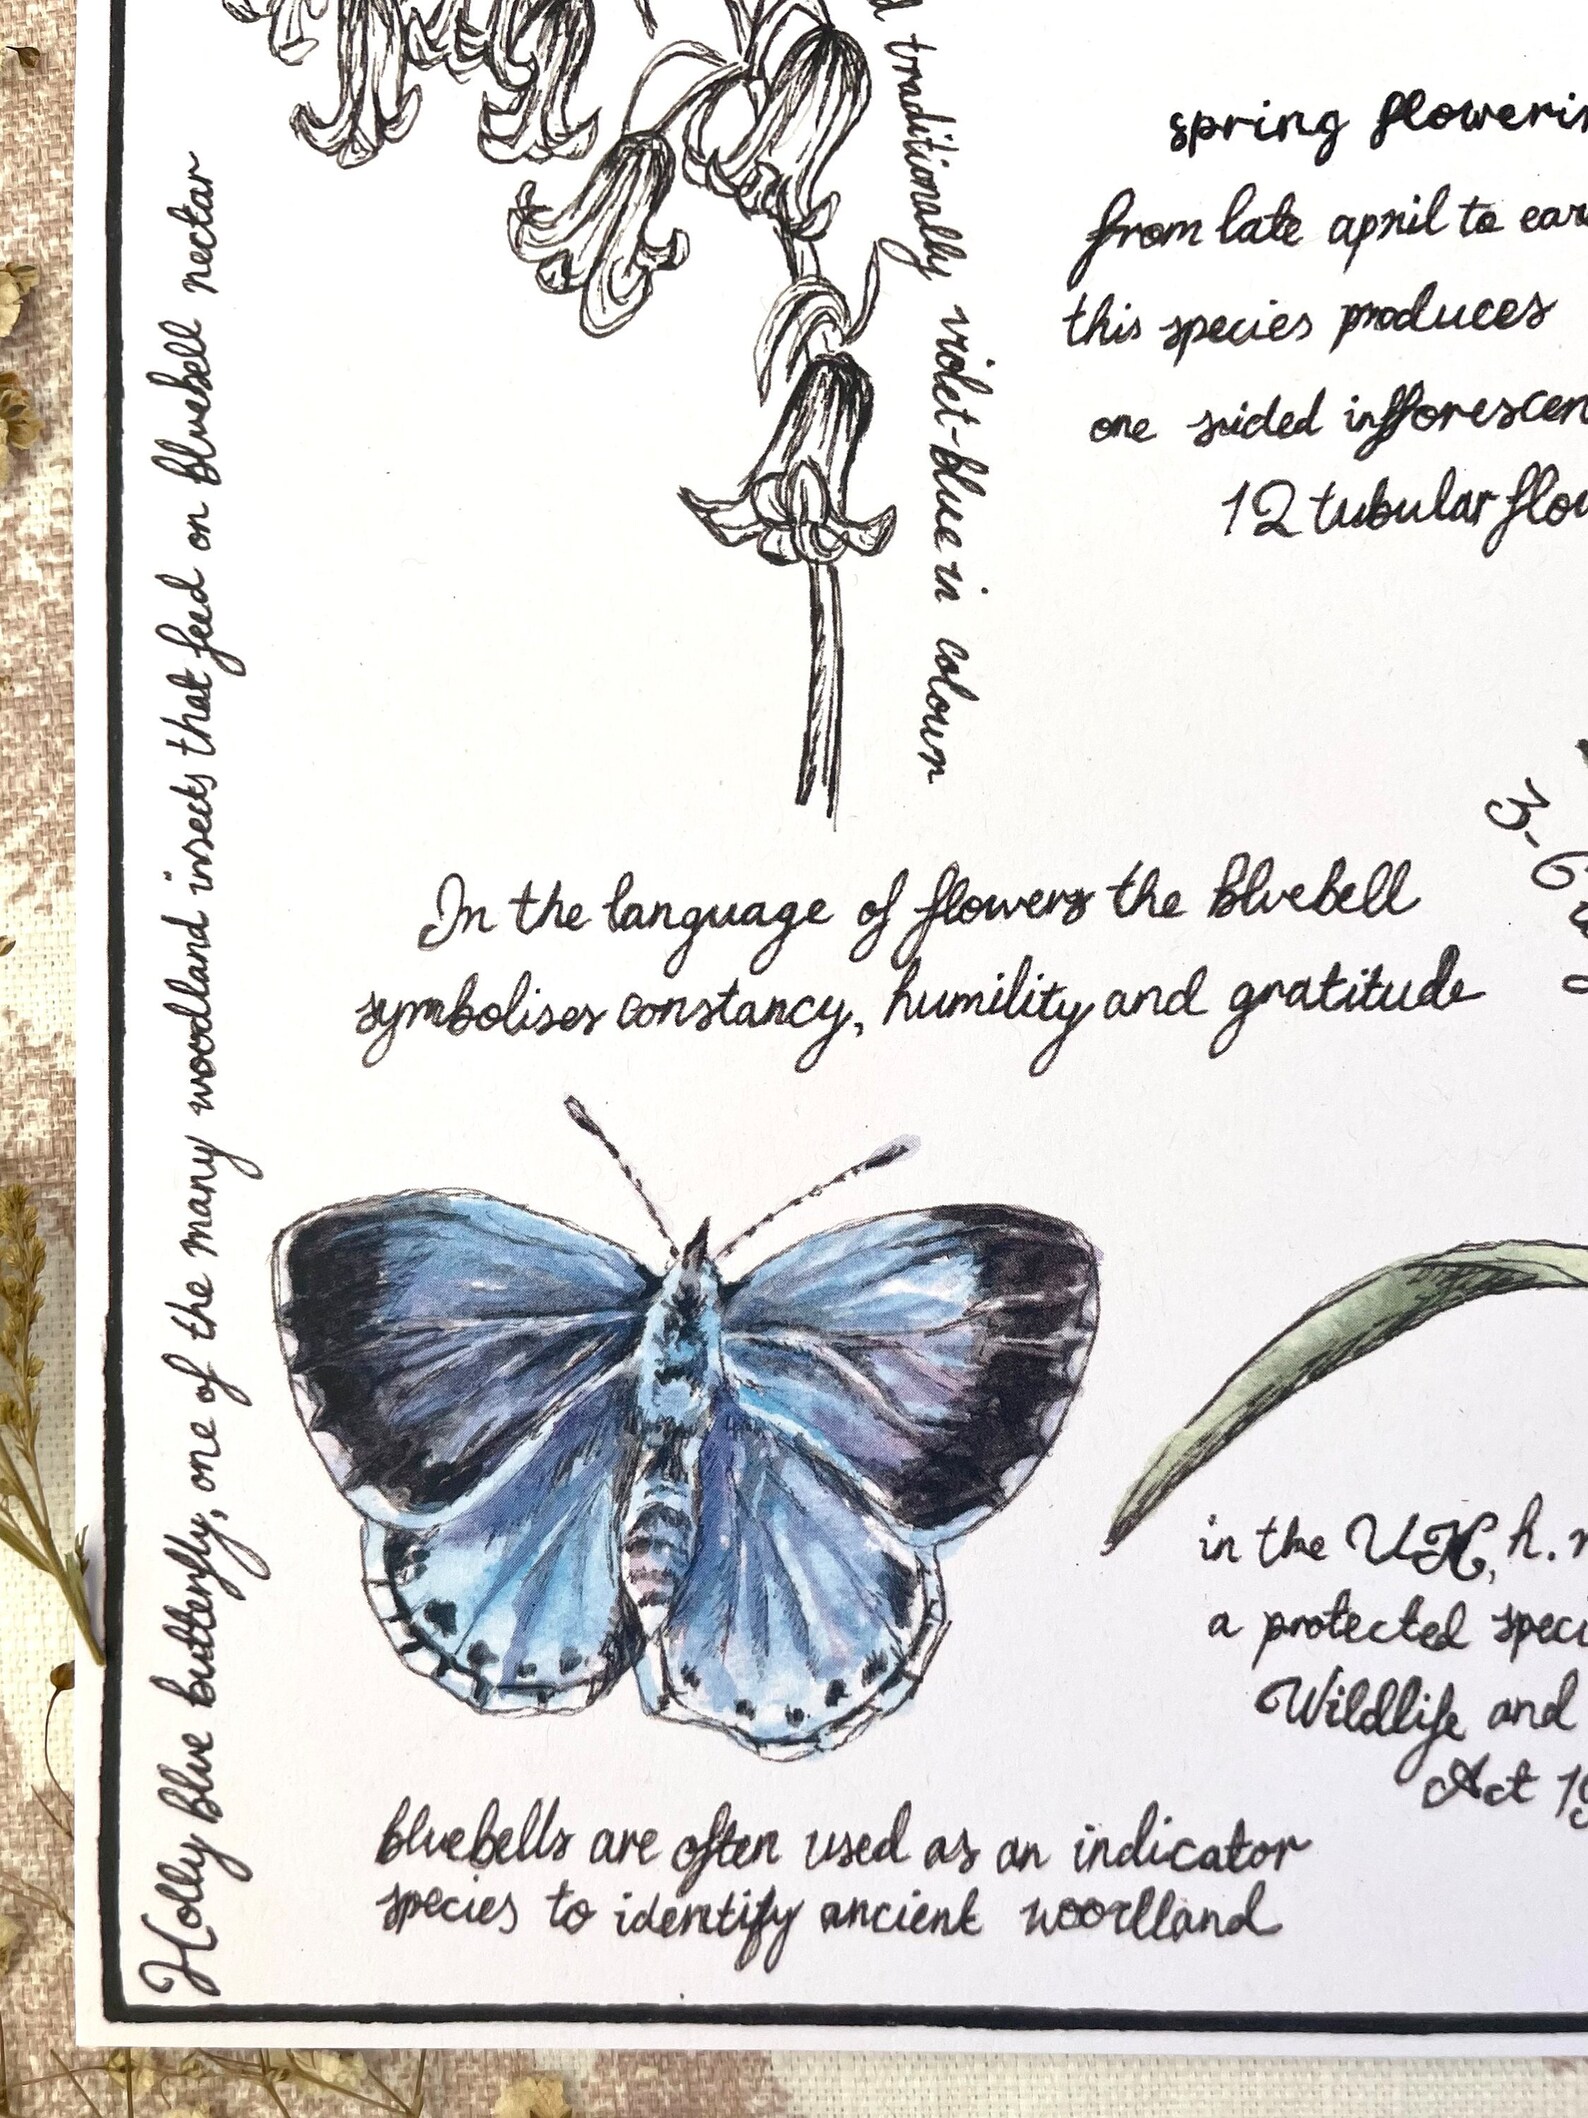 traditionally violet-blue in colour
spring
from late april to
this species produces
one sided
12 tubular
In the language of flowers the bluebell
symbolises constancy, humility and gratitude
Holly blue butterfly, one of the many woodland insects that feed on bluebell nectar
in the UK, h.
a protected
Wildlife and
Act
bluebells are often used as an indicator
species to identify ancient woodland